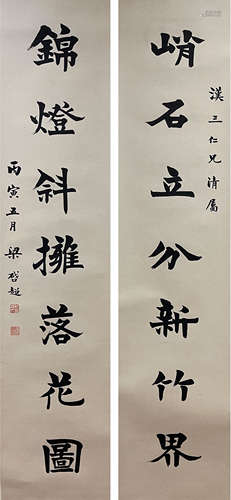 漢三仁兄清属
峭石立分新竹界
錦燈斜擁落花圖
丙寅五月 梁啓超